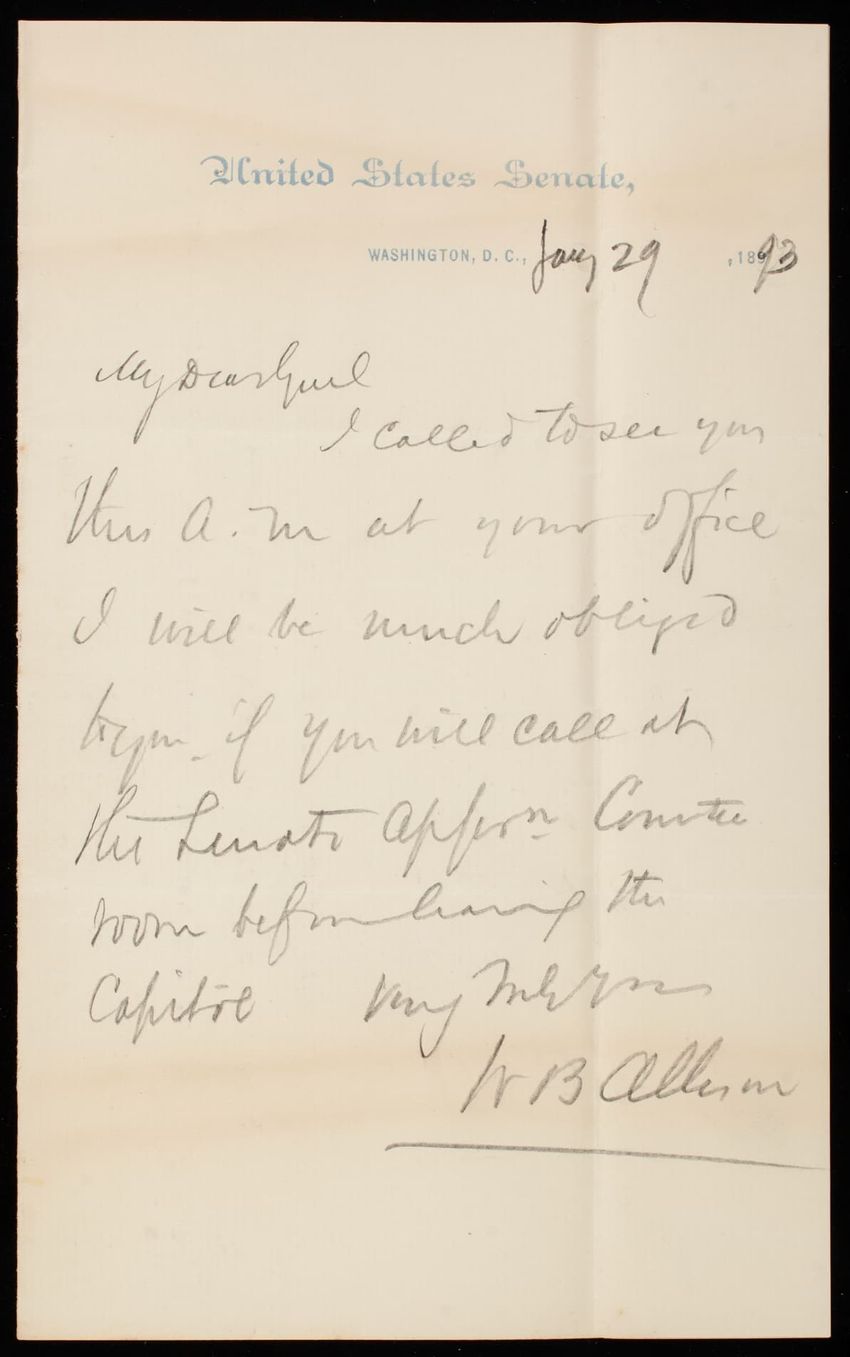 United States Senate,
WASHINGTON, D. C., Jany 29, 1893
My Dear Genl
I called to see you
this A. M at your office
I will be much obliged
to you if you will call at
the Senate Appron Comtee
room before leaving the
Capitol Very Truly Yours
W B Allison